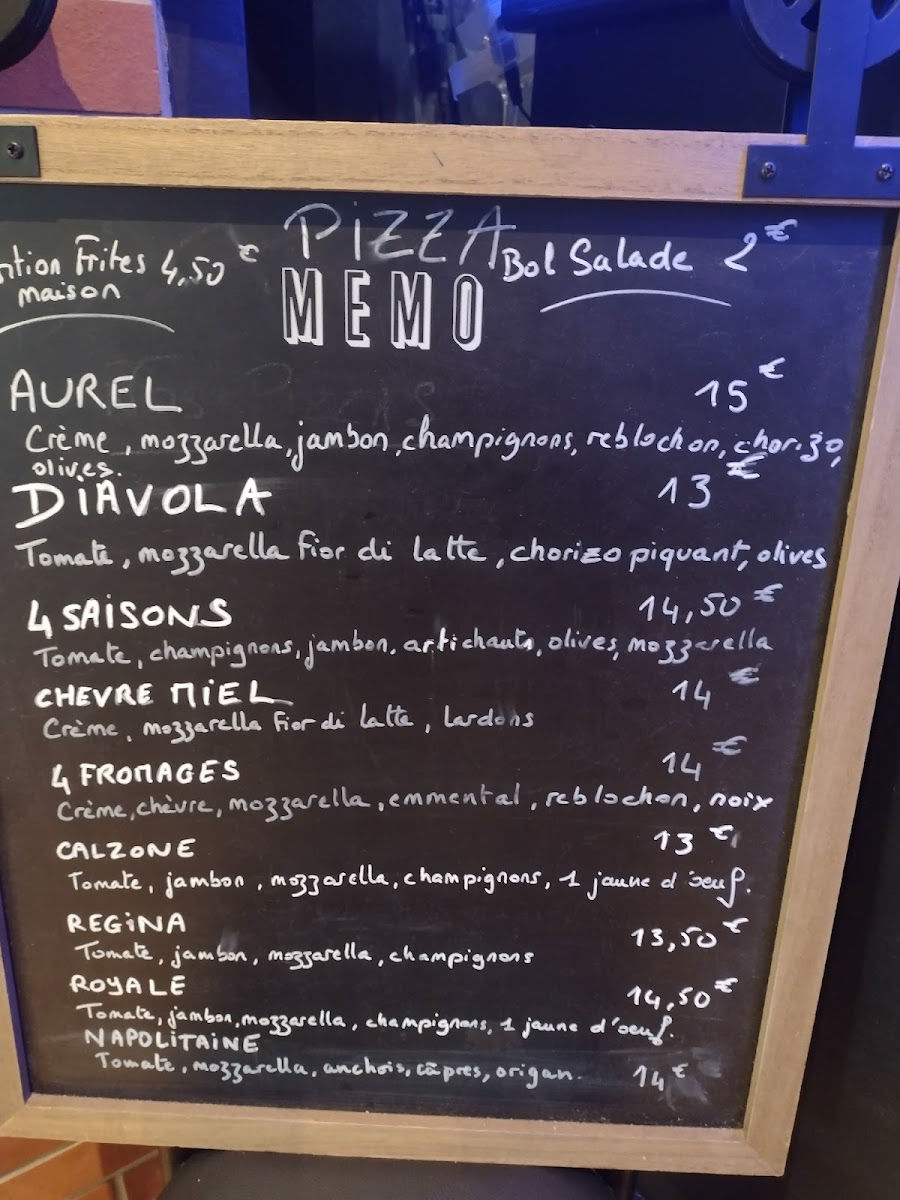 PIZZA
MEMO
Frites 4,50 €
maison
Bol Salade 2 €
AUREL 15 €
Crème, mozzarella, jambon, champignons, reblochon, chorizo,
olives.
DIAVOLA 13 €
Tomate, mozzarella fior di latte, chorizo piquant, olives
4 SAISONS 14,50 €
Tomate, champignons, jambon, artichauts, olives, mozzarella
CHEVRE MIEL 14 €
Crème, mozzarella fior di latte, lardons
4 FROMAGES 14 €
Crème, chèvre, mozzarella, emmental, reblochon, noix
CALZONE 13 €
Tomate, jambon, mozzarella, champignons, 1 jaune d'oeuf.
REGINA 13,50 €
Tomate, jambon, mozzarella, champignons
ROYALE 14,50 €
Tomate, jambon, mozzarella, champignons, 1 jaune d'oeuf.
NAPOLITAINE
Tomate, mozzarella, anchois, câpres, origan. 14 €